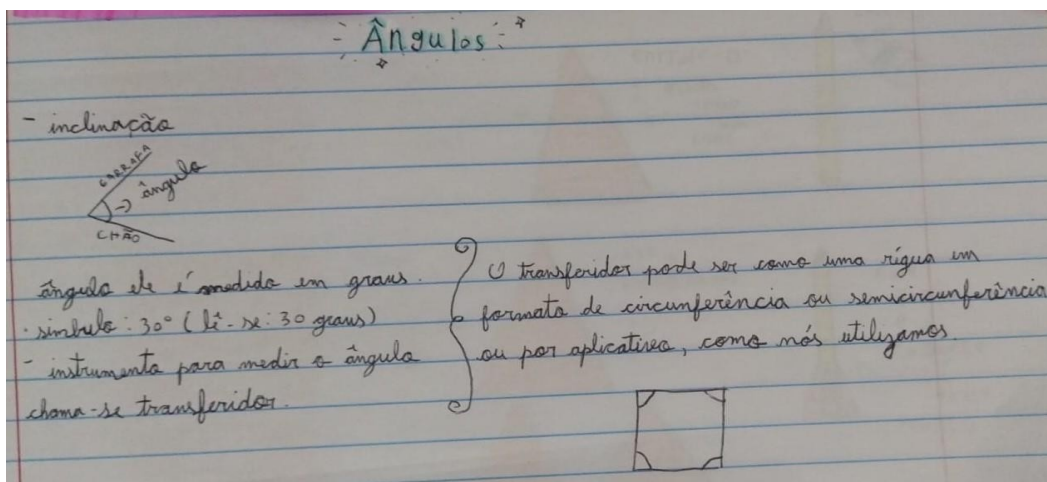 Ângulos
- inclinação
GARRAFA
→ ângulo
CHÃO
ângulo ele é medido em graus.
· símbulo: 30° (lê-se: 30 graus)
- instrumento para medir o ângulo
chama-se transferidor.
O transferidor pode ser como uma rígua em
formato de circunferência ou semicircunferência
ou por aplicativo, como nós utilizamos.